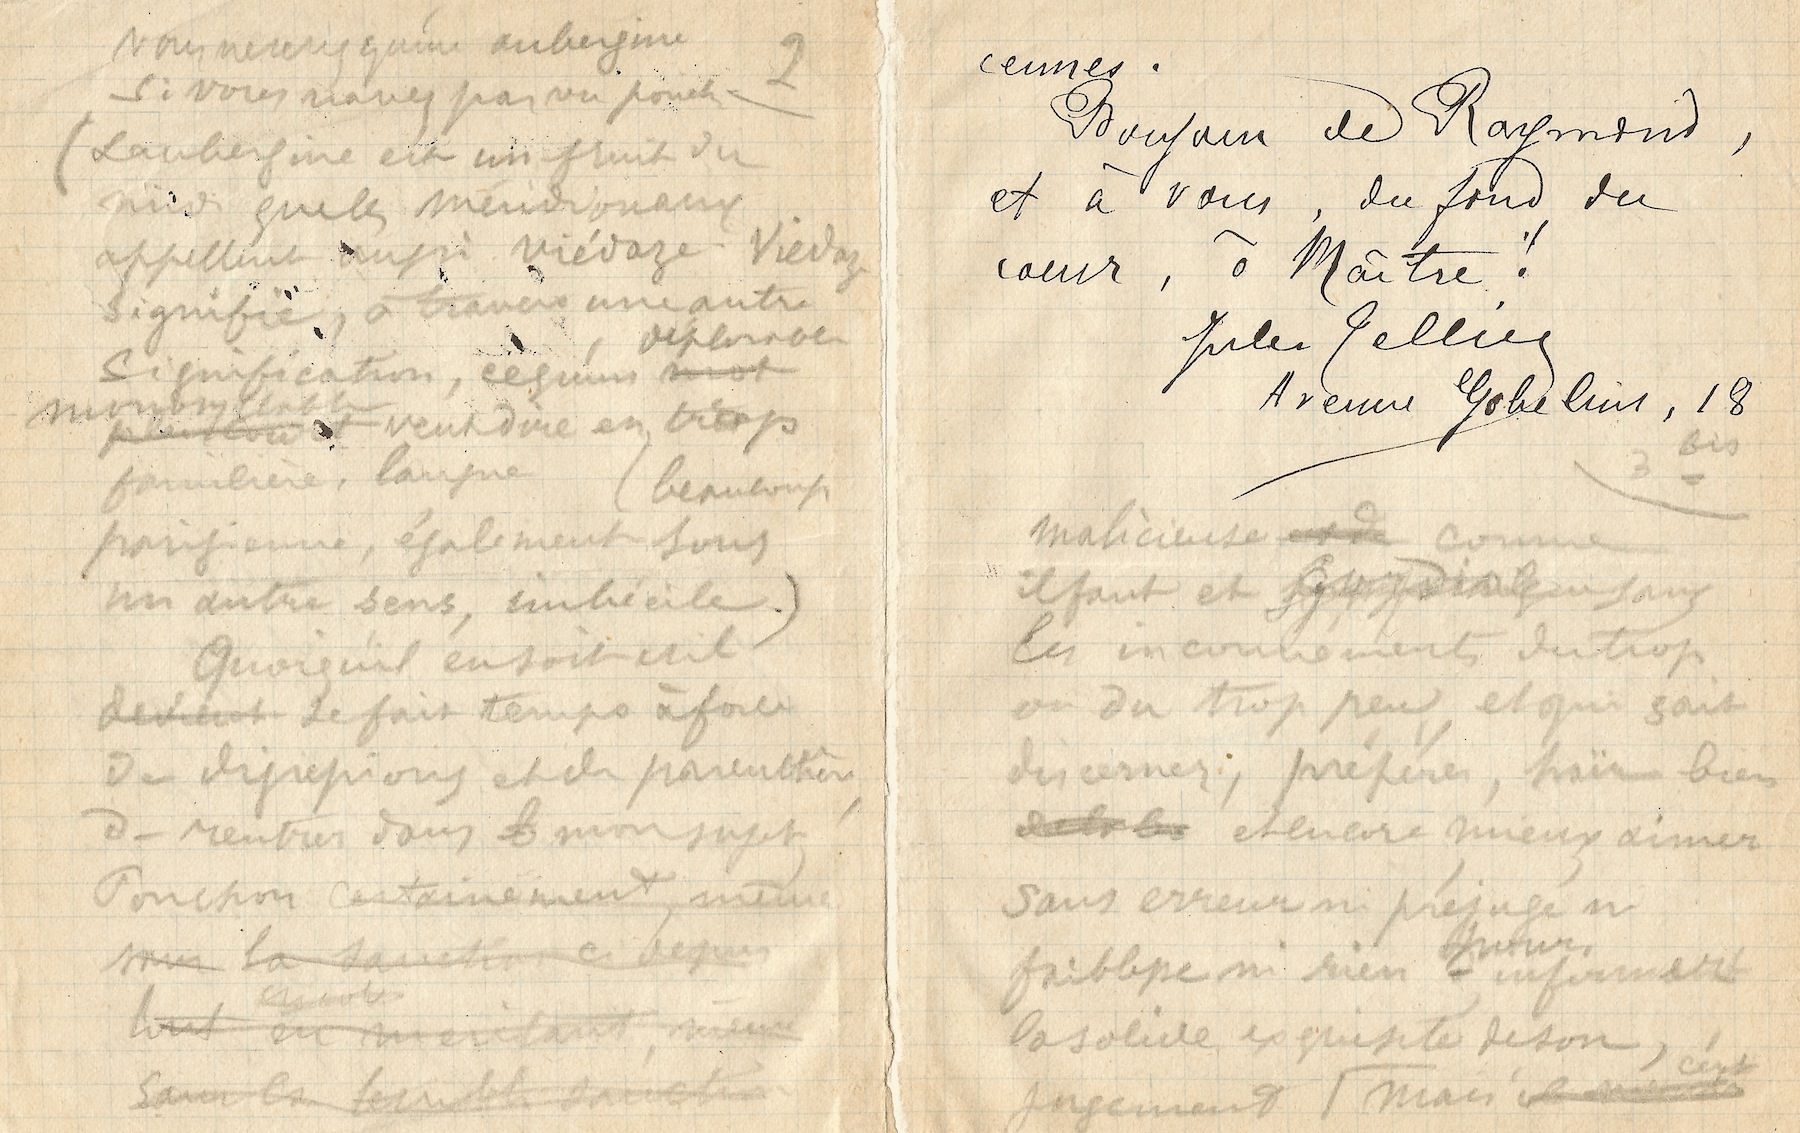 2
Vous n'etes qu'une aubergine
Si vous n'avez pas vu ponch-
(L'aubergine est un fruit du
midi que les méridionaux
appellent aussi viédaze Viédaze
signifie, à travers une autre
déplorable
signification, ce qu'un mot
monosyllabe
veut dire en trop
familière langue (beaucoup
parisienne, également sous
un autre sens, imbécile.)
Quoiqu'il en soit il
devient se fait temps à force
de digressions et de parenthèses,
de rentrer dans le mon sujet,
Ponchon certainement, même
sous la sanction ci dessus
tout en méritant, même
sans la terrible sanction
cennes.
Bonjour de Raymond,
et à vous, du fond du
coeur, ô Maître !
Jules Tellier
Avenue Gobelins, 18
3 bis
malicieuse comme
il faut et sans
les inconvénients du trop
ou du trop peu, et qui sait
discerner, préférer, haïr bien
et encore mieux aimer
sans erreur ni préjugé ni
faiblesse ni rien
la solide exquisité de son,
cést
jugement Mais il